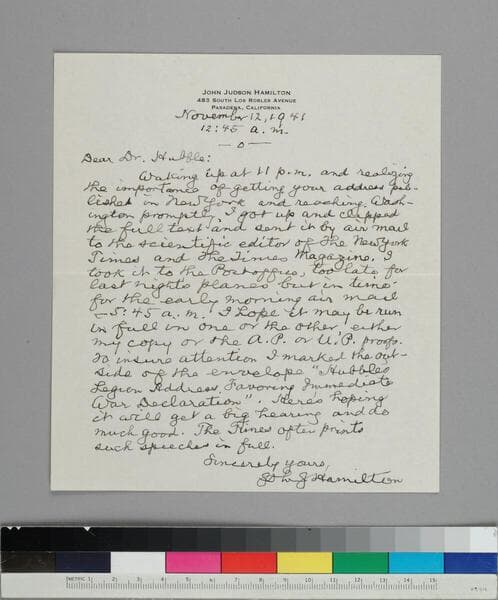 John Judson Hamilton
483 South Los Robles Avenue
Pasadena, California
November 12, 1941
12:45 a.m.
—o—
Dear Dr. Hubble:
Waking up at 11 p.m. and realizing
the importance of getting your address pub-
lished in New York and reaching Wash-
ington promptly, I got up and clipped
the full text and sent it by air mail
to the scientific editor of The New York
Times and The Times Magazine. I
took it to the Post office, too late for
last night's planes but in time
for the early morning air mail
– 5:45 a.m. I hope it may be run
in full in one or the other, either
my copy or the A.P. or U.P. proofs.
To insure attention I marked the out-
side of the envelope "Hubble's
Legion Address, Favoring Immediate
War Declaration". Here's hoping
it will get a big hearing and do
much good. The Times often prints
such speeches in full.
Sincerely yours,
Hamilton
METRIC 1 2 3 4 5 6 7 8 9 10 11 12 13 14 15